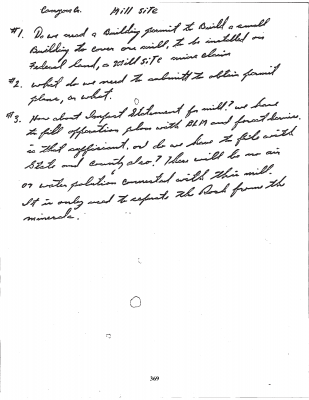 Mill Site
#1. Do we need a Building permit to Build a small
Building to cover our mill, to be installed on
Federal land, a Mill site mine claim
#2. what do we need to submitt to obtain permit
plans, or what.
#3. How about Impact Statement for mill? we have
to fill opperation plan with BLM and forest service.
is that sufficient, or do we have to file with
State and County also? There will be no air
or water polution connected with this mill.
It is only used to seperate the Rock from the
minerals.
369